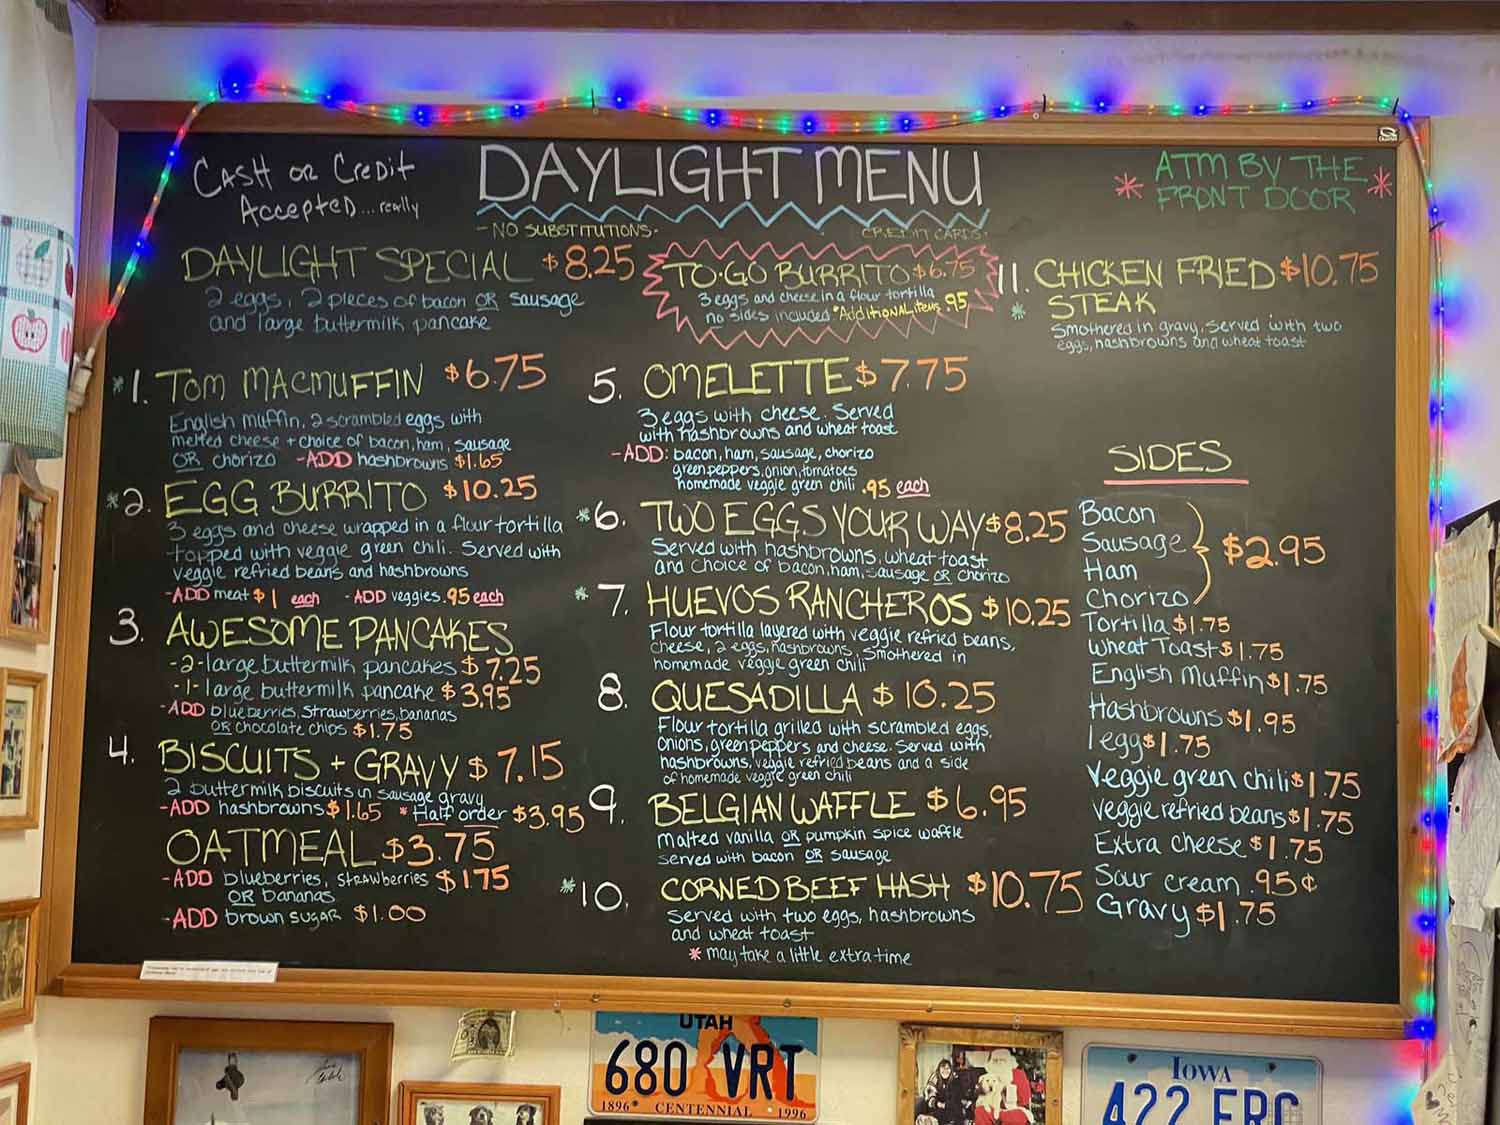 CASH OR CREDIT
ACCEPTED...really
DAYLIGHT MENU
* ATM BY THE *
FRONT DOOR
-NO SUBSTITUTIONS-
CREDIT CARDS-
DAYLIGHT SPECIAL $8.25
2 eggs, 2 pieces of bacon OR sausage
and large buttermilk pancake
TO-GO BURRITO $6.75
3 eggs and cheese in a flour tortilla
no sides included *Additional items .95
*1. TOM MACMUFFIN $6.75
English muffin, 2 scrambled eggs with
melted cheese + choice of bacon, ham, sausage
OR chorizo -ADD hashbrowns $1.65
*2. EGG BURRITO $10.25
3 eggs and cheese wrapped in a flour tortilla
topped with veggie green chili. Served with
veggie refried beans and hashbrowns
-ADD meat $1 each -ADD veggies .95 each
3. AWESOME PANCAKES
-2-large buttermilk pancakes $7.25
-1-large buttermilk pancake $3.95
-ADD blueberries, strawberries, bananas
OR chocolate chips $1.75
4. BISCUITS + GRAVY $7.15
2 buttermilk biscuits in sausage gravy
-ADD hashbrowns $1.65 *Half order $3.95
OATMEAL $3.75
-ADD blueberries, strawberries $1.75
OR bananas
-ADD brown sugar $1.00
5. OMELETTE $7.75
3 eggs with cheese. Served
with hashbrowns and wheat toast
-ADD: bacon, ham, sausage, chorizo
green peppers, onion, tomatoes
homemade veggie green chili .95 each
*6. TWO EGGS YOUR WAY $8.25
Served with hashbrowns, wheat toast
and choice of bacon, ham, sausage OR chorizo
*7. HUEVOS RANCHEROS $10.25
Flour tortilla layered with veggie refried beans,
cheese, 2 eggs, hashbrowns, smothered in
homemade veggie green chili
8. QUESADILLA $10.25
Flour tortilla grilled with scrambled eggs,
onions, green peppers and cheese. Served with
hashbrowns, veggie refried beans and a side
of homemade veggie green chili
9. BELGIAN WAFFLE $6.95
Malted vanilla OR pumpkin spice waffle
served with bacon OR sausage
*10. CORNED BEEF HASH $10.75
served with two eggs, hashbrowns
and wheat toast
* may take a little extra time
11. CHICKEN FRIED $10.75
* STEAK
Smothered in gravy. Served with two
eggs, hashbrowns and wheat toast
SIDES
Bacon
Sausage $2.95
Ham
Chorizo
Tortilla $1.75
Wheat Toast $1.75
English Muffin $1.75
Hashbrowns $1.95
1 egg $1.75
Veggie green chili $1.75
Veggie refried beans $1.75
Extra Cheese $1.75
Sour cream .95¢
Gravy $1.75
UTAH
680 VRT
1896 CENTENNIAL 1996
IOWA
422 ERC